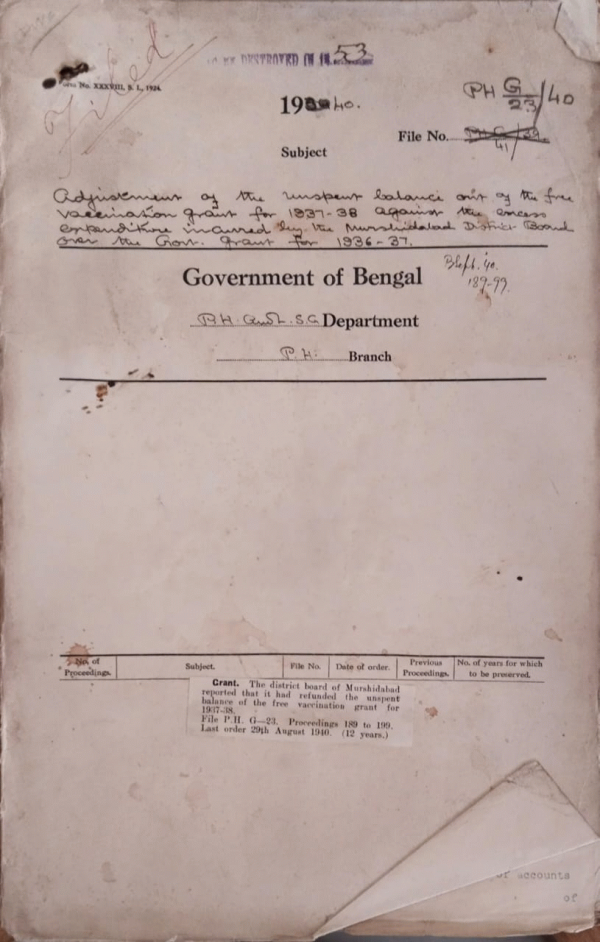 Filed.
TO BE DESTROYED IN 19 53
Form No. XXXVIII, B. I., 1924.
1940.
PH G/23/40
File No.
Subject
Adjustment of the unspent balance out of the free
vaccination grant for 1937-38 against the excess
expenditure incurred by the Murshidabad District Board
over the Govt. grant for 1936-37.
Government of Bengal
B Sept. '40.
189-99.
P.H. and L.S.G. Department
P.H. Branch
No. of Proceedings. Subject. File No. Date of order. Previous Proceedings. No. of years for which to be preserved.
Grant. The district board of Murshidabad
reported that it had refunded the unspent
balance of the free vaccination grant for
1937-38.
File P.H. G—23. Proceedings 189 to 199.
Last order 29th August 1940. (12 years.)
of accounts
of